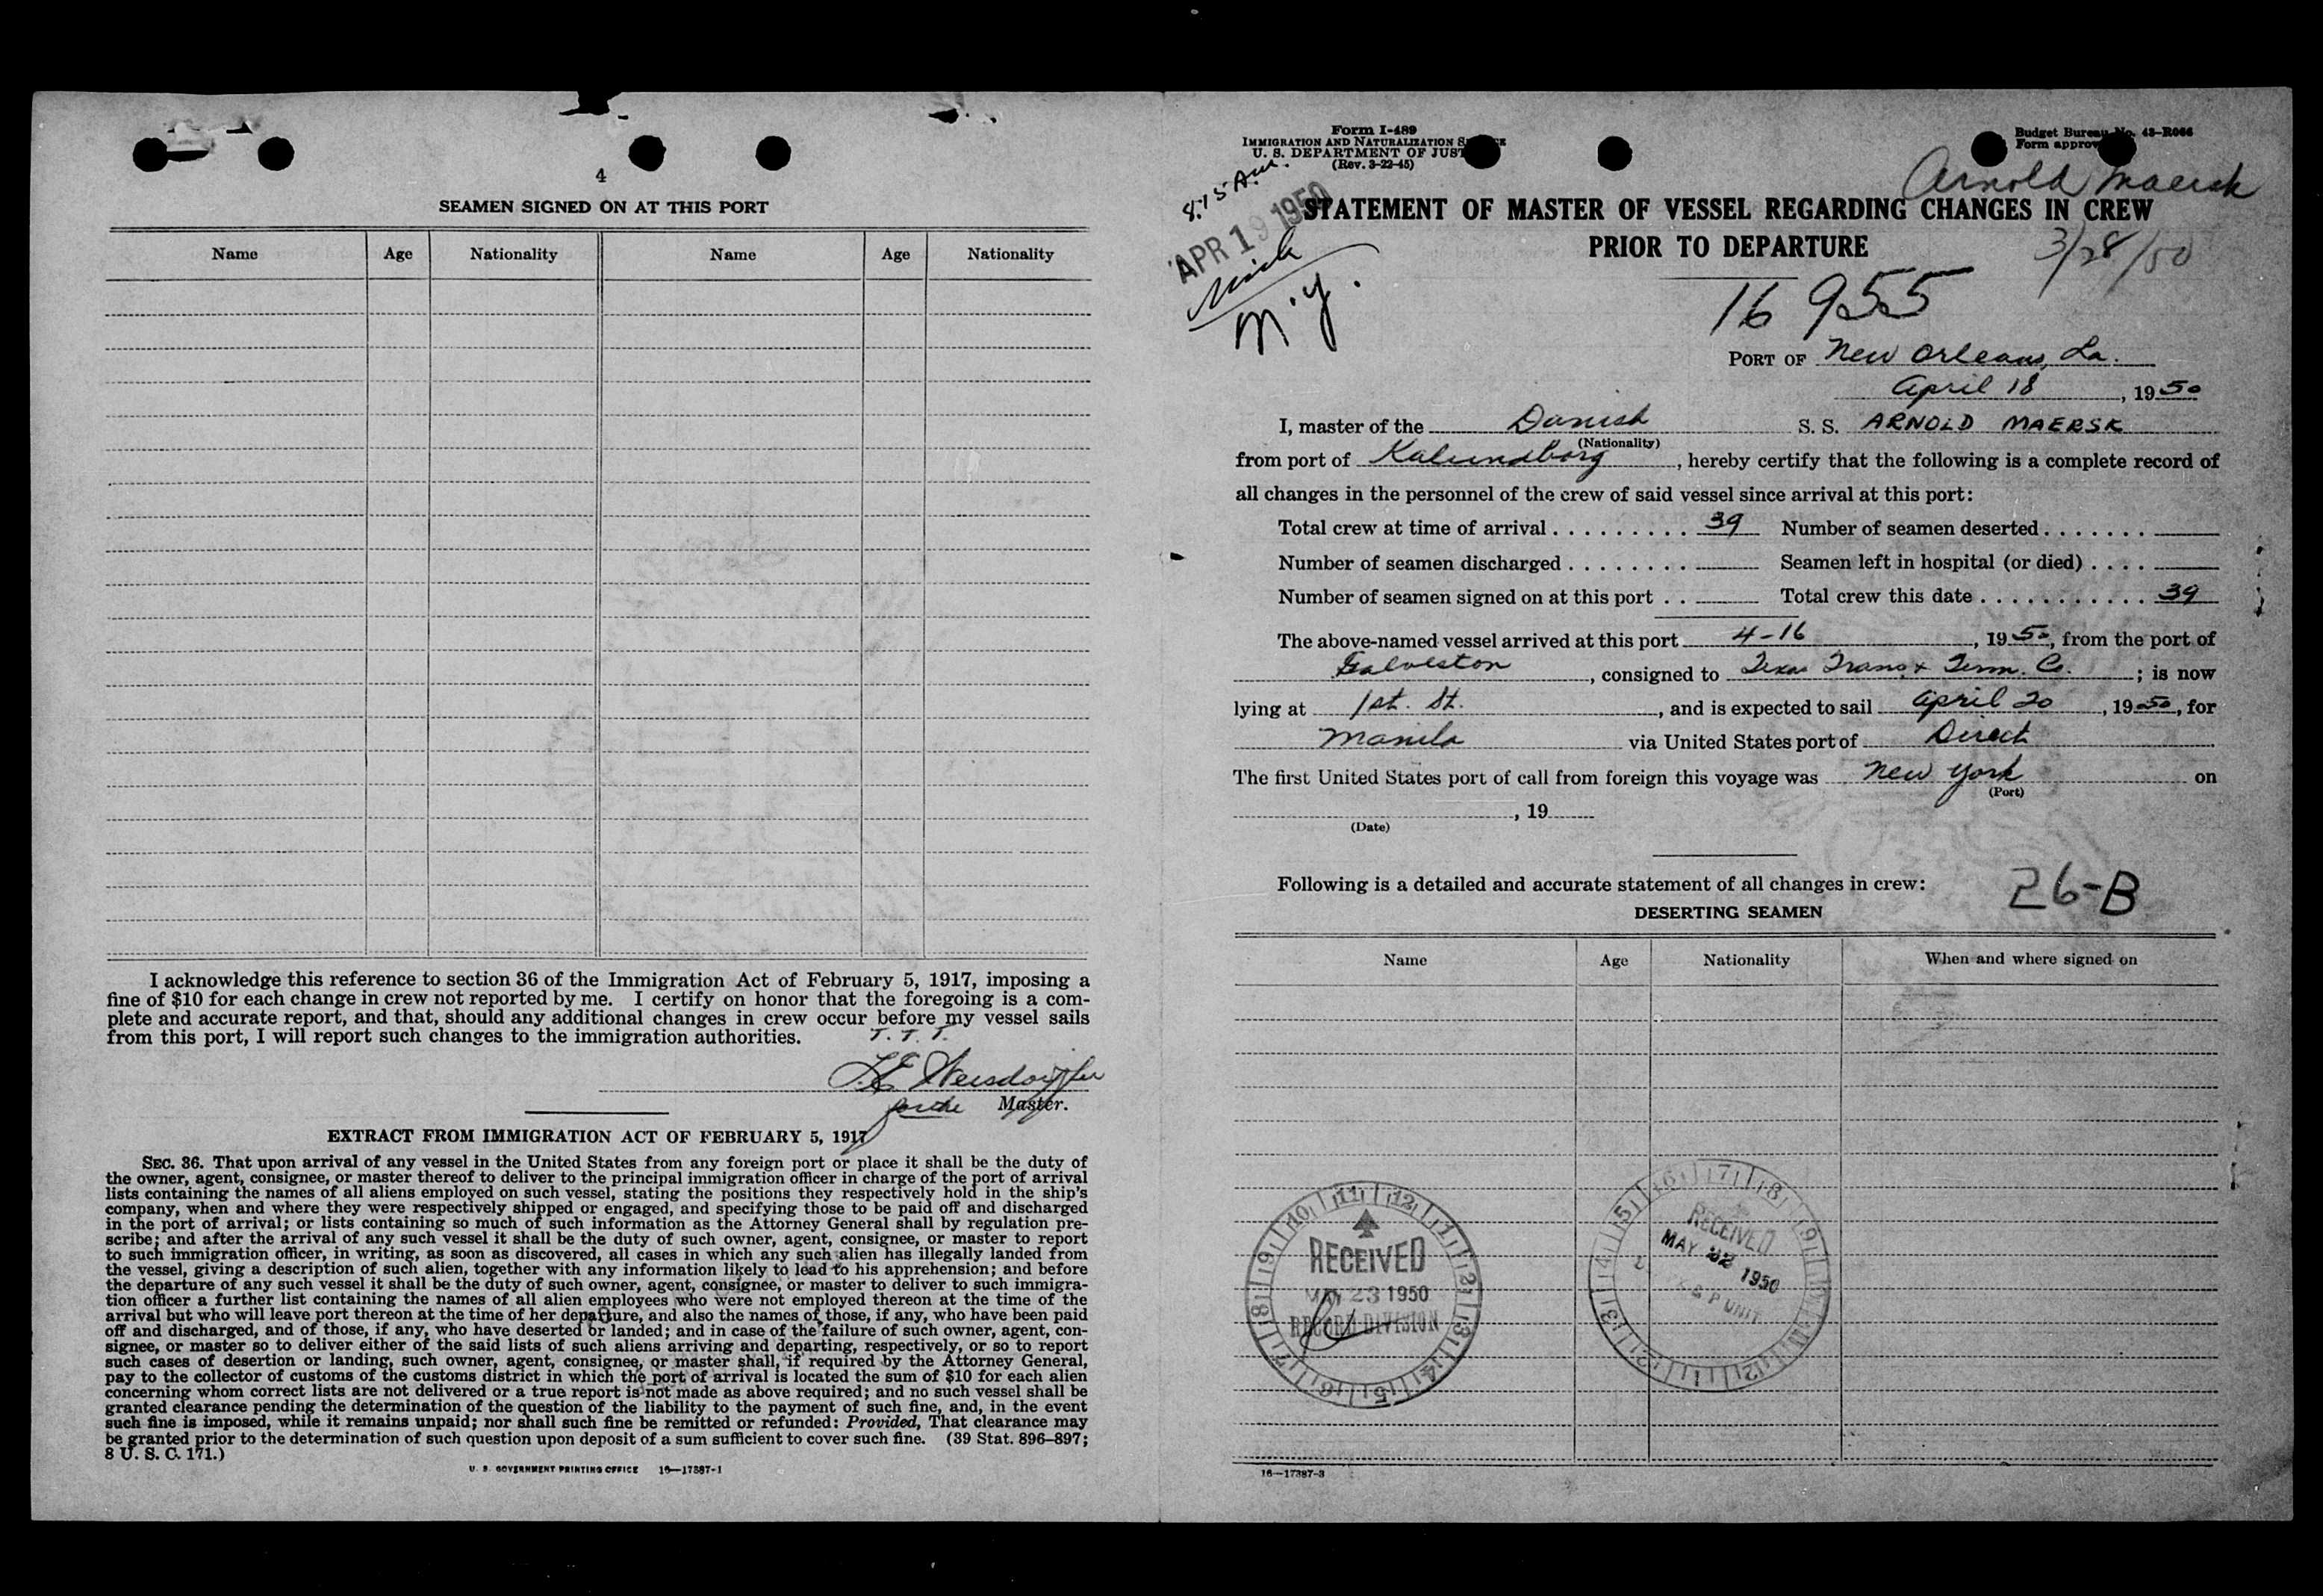 4
SEAMEN SIGNED ON AT THIS PORT
Name Age Nationality Name Age Nationality
I acknowledge this reference to section 36 of the Immigration Act of February 5, 1917, imposing a
fine of $10 for each change in crew not reported by me. I certify on honor that the foregoing is a com-
plete and accurate report, and that, should any additional changes in crew occur before my vessel sails
from this port, I will report such changes to the immigration authorities.
T. T. T.
Master.
EXTRACT FROM IMMIGRATION ACT OF FEBRUARY 5, 1917
SEC. 36. That upon arrival of any vessel in the United States from any foreign port or place it shall be the duty of
the owner, agent, consignee, or master thereof to deliver to the principal immigration officer in charge of the port of arrival
lists containing the names of all aliens employed on such vessel, stating the positions they respectively hold in the ship's
company, when and where they were respectively shipped or engaged, and specifying those to be paid off and discharged
in the port of arrival; or lists containing so much of such information as the Attorney General shall by regulation pre-
scribe; and after the arrival of any such vessel it shall be the duty of such owner, agent, consignee, or master to report
to such immigration officer, in writing, as soon as discovered, all cases in which any such alien has illegally landed from
the vessel, giving a description of such alien, together with any information likely to lead to his apprehension; and before
the departure of any such vessel it shall be the duty of such owner, agent, consignee, or master to deliver to such immigra-
tion officer a further list containing the names of all alien employees who were not employed thereon at the time of the
arrival but who will leave port thereon at the time of her departure, and also the names of those, if any, who have been paid
off and discharged, and of those, if any, who have deserted or landed; and in case of the failure of such owner, agent, con-
signee, or master so to deliver either of the said lists of such aliens arriving and departing, respectively, or so to report
such cases of desertion or landing, such owner, agent, consignee, or master shall, if required by the Attorney General,
pay to the collector of customs of the customs district in which the port of arrival is located the sum of $10 for each alien
concerning whom correct lists are not delivered or a true report is not made as above required; and no such vessel shall be
granted clearance pending the determination of the question of the liability to the payment of such fine, and, in the event
such fine is imposed, while it remains unpaid; nor shall such fine be remitted or refunded: Provided, That clearance may
be granted prior to the determination of such question upon deposit of a sum sufficient to cover such fine. (39 Stat. 896–897;
8 U. S. C. 171.)
U. S. GOVERNMENT PRINTING OFFICE 16—17387-1
Form I-489
IMMIGRATION AND NATURALIZATION
U. S. DEPARTMENT OF JUST
(Rev. 3-22-45)
Budget Bureau No. 43-R066
Form approv
8:15 A.M.
APR 19 1950
N.Y.
Arnold Maersk
STATEMENT OF MASTER OF VESSEL REGARDING CHANGES IN CREW
PRIOR TO DEPARTURE
3/28/50
16 955
PORT OF New Orleans, La.
April 18, 1950
I, master of the Danish S. S. ARNOLD MAERSK
(Nationality)
from port of Kalundborg, hereby certify that the following is a complete record of
all changes in the personnel of the crew of said vessel since arrival at this port:
Total crew at time of arrival . . . . . . . . . 39 Number of seamen deserted . . . . . . .
Number of seamen discharged . . . . . . . . Seamen left in hospital (or died) . . . .
Number of seamen signed on at this port . . Total crew this date . . . . . . . . . . . 39
The above-named vessel arrived at this port 4-16, 1950, from the port of
Galveston, consigned to Texas Trans. & Term. Co.; is now
lying at 1st. St., and is expected to sail April 20, 1950, for
Manila via United States port of Direct
The first United States port of call from foreign this voyage was New York on
(Port)
, 19
(Date)
Following is a detailed and accurate statement of all changes in crew:
26-B
DESERTING SEAMEN
Name Age Nationality When and where signed on
RECEIVED
MAY 23 1950
RECORD DIVISION
RECEIVED
MAY 22 1950
16—17387-3